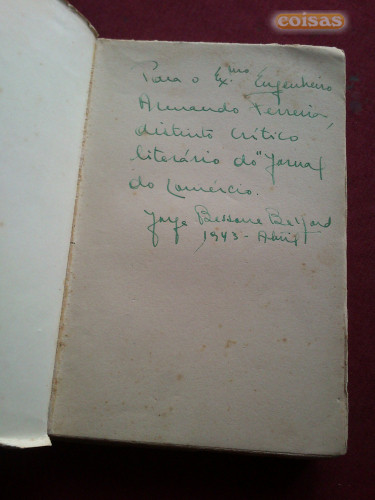 coisas
Para o Ex.mo Engenheiro
Armando Ferreira,
distinto crítico
literário do "Jornal
do Comércio.
Jorge Bessone Basford
1943 - Abril